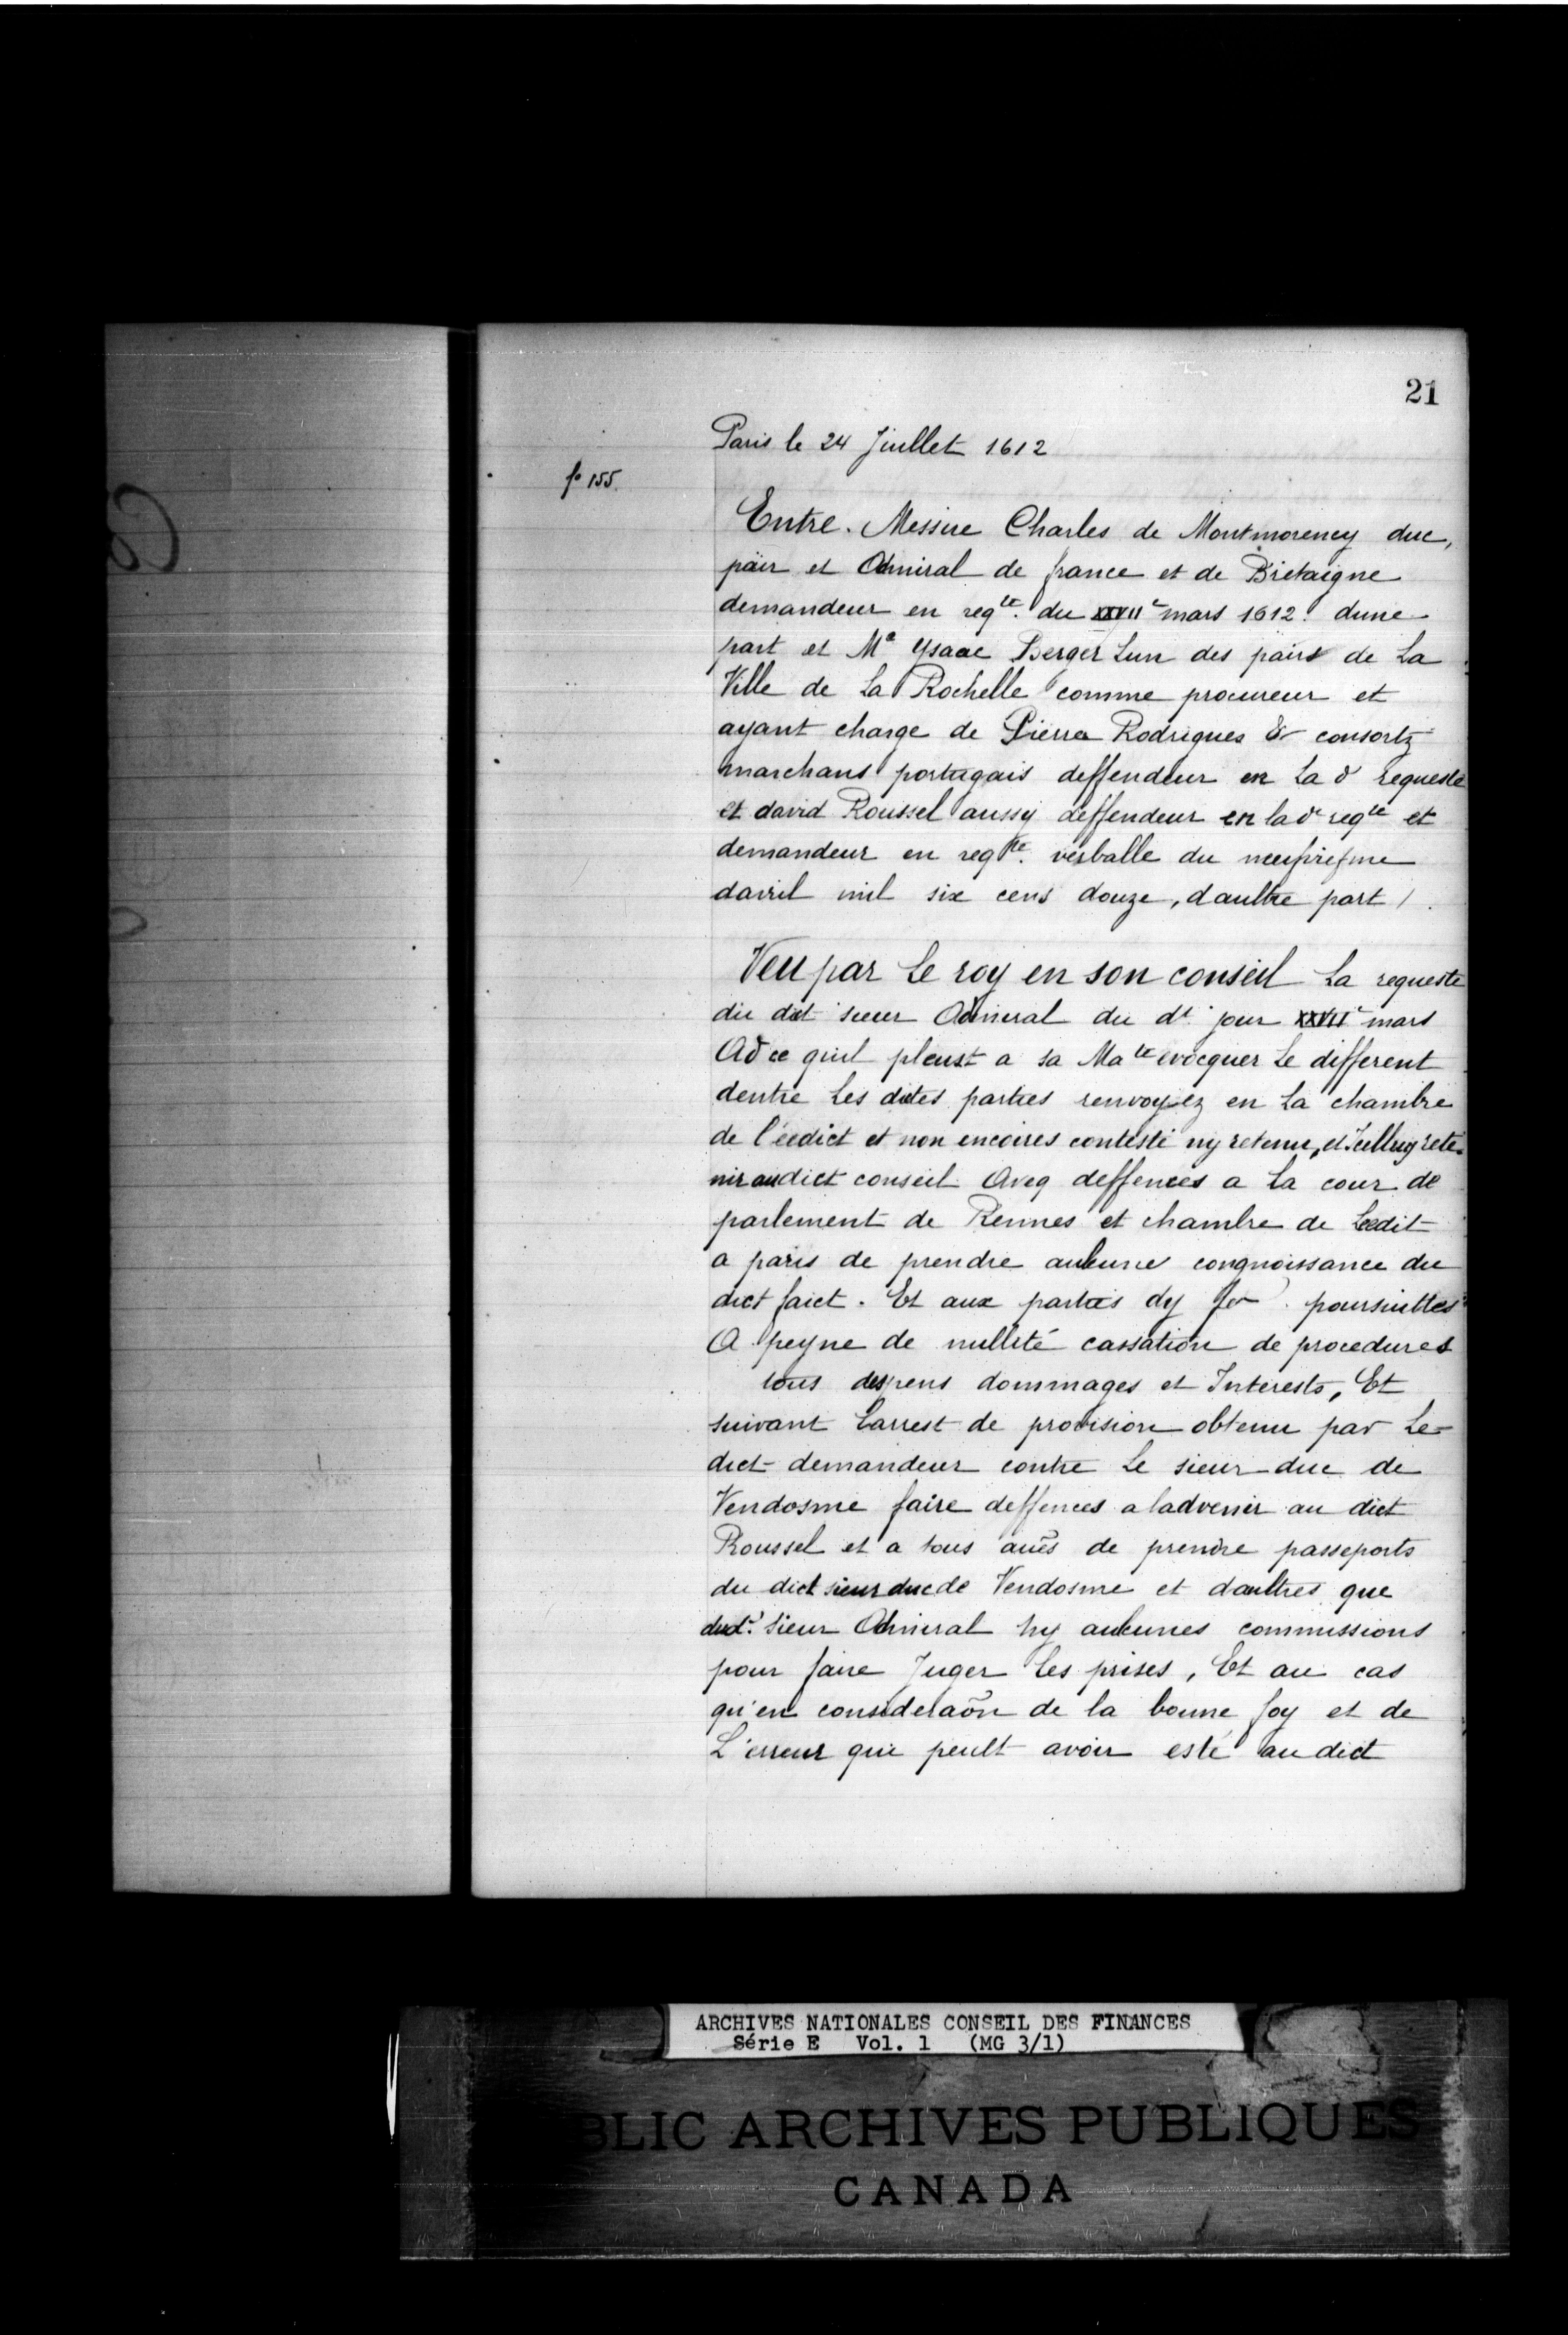 21
Paris le 24 Juillet 1612
fº 155.
Entre. Messire Charles de Montmorency duc,
pair et Admiral de france et de Bretaigne
demandeur en reqte. du XXVIIe mars 1612. dune
part et Me Ysaac Berger Lun des pairs de La
Ville de La Rochelle comme procureur et
ayant charge de Pierre Rodrigues & consortz
marchans portugais deffendeur en La d requeste
et david Roussel aussy deffendeur en la de reqte et
demandeur en reqte. verballe du neufiesme
davril mil six cens douze, daultre part /.
Veu par Le roy en son conseil La requeste
du dict sieur Admiral du dt jour XXVIIe mars
Ad ce quil pleust a sa Mate evocquer Le different
dentre Les dites parties renvoyez en La chambre
de l'eedict et non encoires contesté ny retenu, et Icelluy rete-
nir audict conseil Aveq deffences a La cour de
parlement de Rennes et chambre de Leedit
a paris de prendre aulcune congnoissance du
dict faict. Et aux parties dy poursuittes
A peyne de nullité cassation de procedures
tous despens dommages et Interests, Et
suivant Larrest de provision obtenu par Le-
dict demandeur contre Le sieur duc de
Vendosme faire deffences a ladvenir au dict
Roussel et a tous aũs de prendre passeports
du dict sieur duc de Vendosme et daultres que
dudt. sieur Admiral ny aulcunes commissions
pour faire Juger Les prises, Et au cas
qu'en consideraõn de la bonne foy et de
L'erreur qui peult avoir esté au dict
ARCHIVES NATIONALES CONSEIL DES FINANCES
Série E Vol. 1 (MG 3/1)
BLIC ARCHIVES PUBLIQUES
CANADA